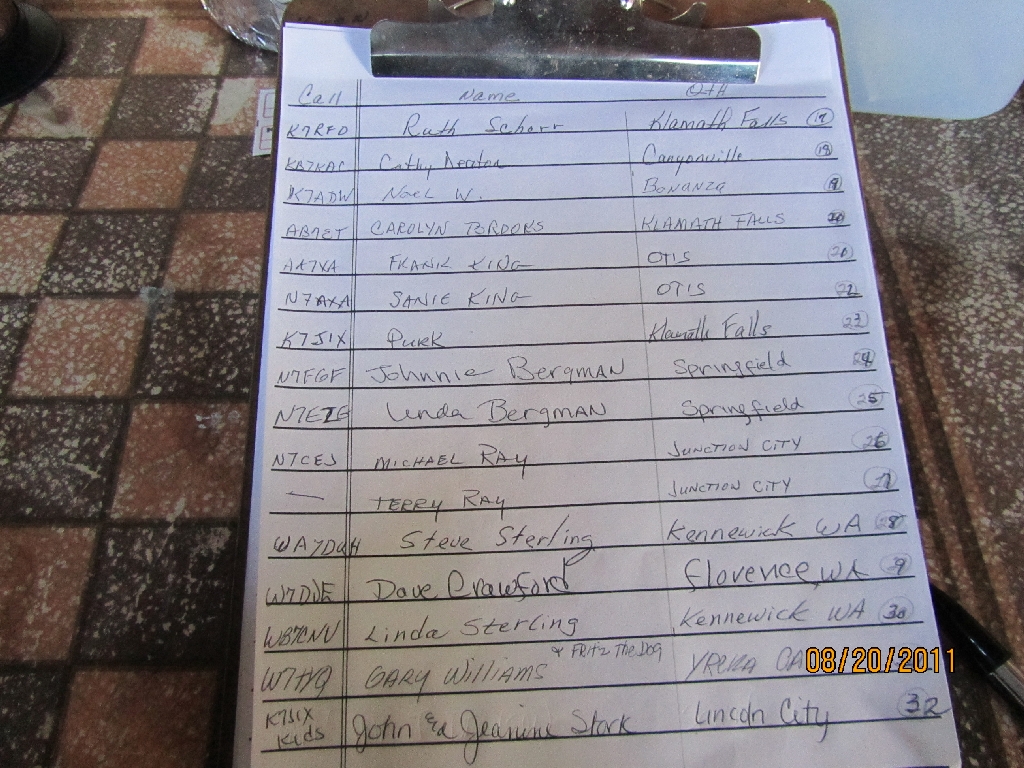 Call Name QTH
K7RFO Ruth Schorr Klamath Falls 17
KB7KAC Cathy Canyonville 18
K7ADW Noel W. Bonanza 19
AB7ET CAROLYN KLAMATH FALLS 20
AA7XA FRANK KING OTIS 21
N7AXA KING OTIS 22
K7JIX Klamath Falls 23
N7FGF Johnnie BergMAN Springfield 24
N7EZE Linda BergMAN Springfield 25
N7CEJ MICHAEL RAY JUNCTION CITY 26
— TERRY RAY JUNCTION CITY
WA7DQH Steve Sterling Kennewick WA 28
Dave Crawford Florence, WA
WB7CNU Linda Sterling Kennewick WA 30
& Fritz The Dog
W7HQ GARY Williams YREKA CA
K7JIX Kids John & Jeanine Stark Lincoln City 32
08/20/2011